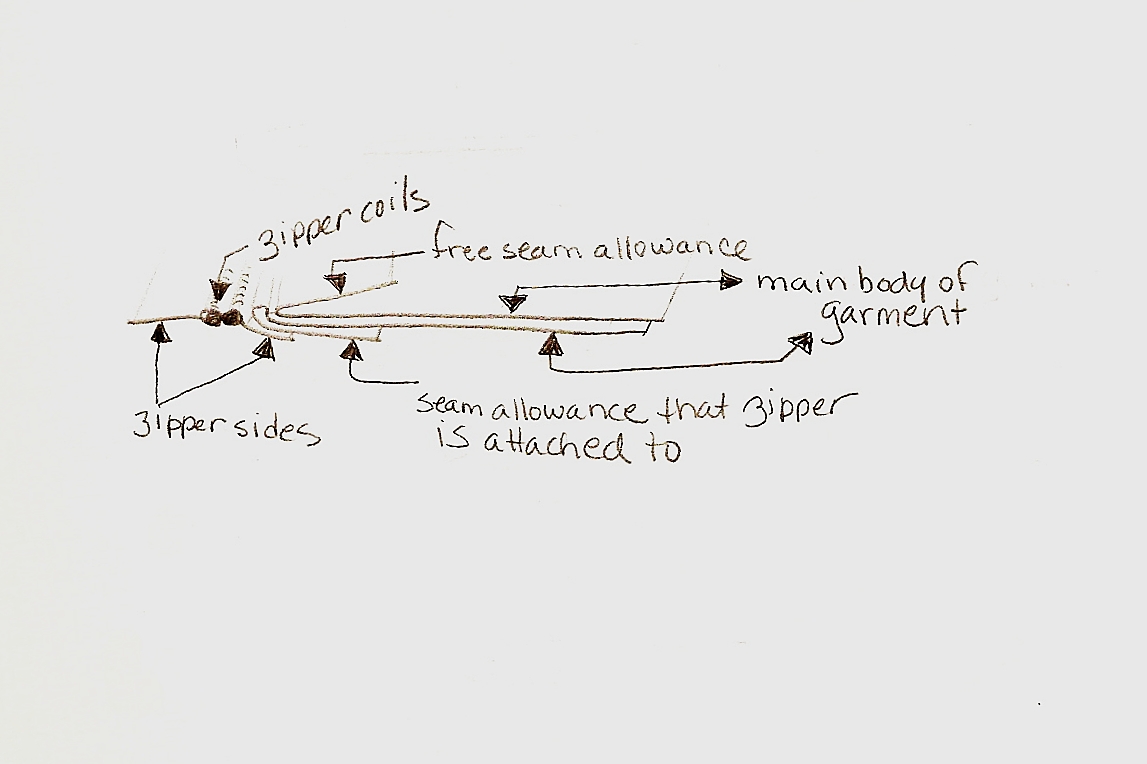 zipper coils
free seam allowance
main body of
garment
zipper sides
seam allowance that zipper
is attached to